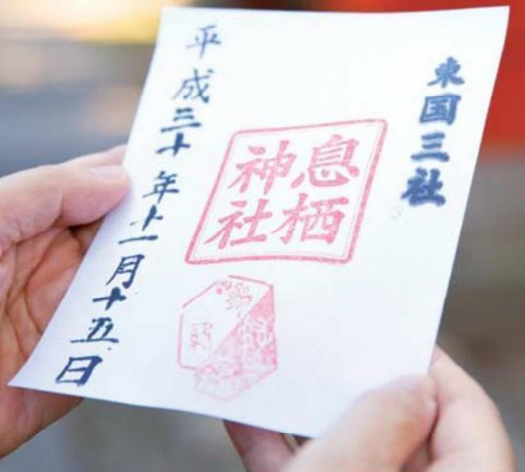 東国三社
息栖
神社
平成三十年十一月十五日